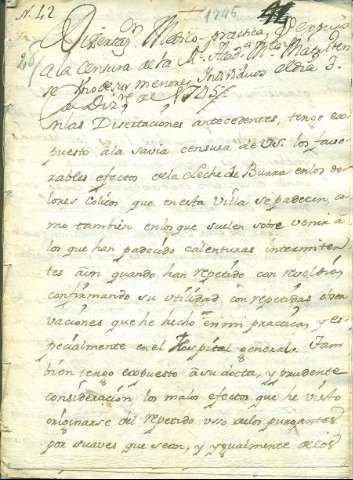 N. 42 1745
Disertaon Medico-practica, qe expuso
a la censura de la Rl. Acada. Mca. Matritense
Uno de sus menores Individuos el dia 3.
de Dizre. de 1745
En las Disertaciones antecedentes, tengo ex-
puesto à la savia censura de VS. los favo-
rables efectos de la Leche de Burra en los do-
lores Colicos que en esta Villa se padecen, co-
mo tambien en los que suelen sobre venir à
los que han padecido calenturas intermiten-
tes aùn quando han repetido con reveldia;
confirmando su utilidad con repetidas obser-
vaciones que he hecho en mi practica, y es-
pecialmente en el Hospital general. Tam-
bien tengo expuesto à su docta, y prudente
consideracion los malos efectos que he visto
originarse del repetido uso de los purgantes
por suaves que sean, y ygualmente de los